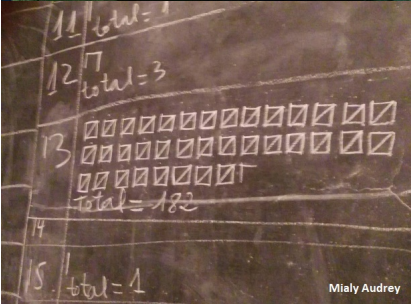 11 total = 1
12
total = 3
13
total = 182
14
15
total = 1
Mialy Audrey